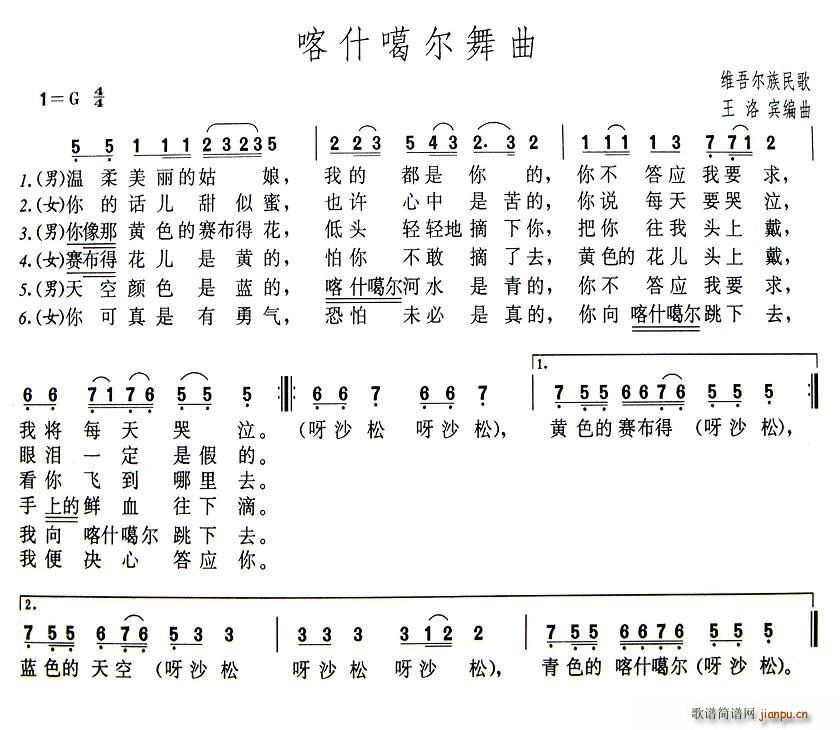 喀什噶尔舞曲
维吾尔族民歌
1=G 4/4
王洛宾编曲
5 5 1 11 2 3 2 3 5 2 2 3 2 2 3 2· 3 2 1 11 1 1 3 7 71 2
1.(男)温柔美丽的姑娘，我的都是你的，你不答应我要求，
2.(女)你的话儿甜似蜜，也许心中是苦的，你说每天要哭泣，
3.(男)你像那黄色的赛布得花，低头轻轻地摘下你，把你往我头上戴，
4.(女)赛布得花儿是黄的，怕你不敢摘了去，黄色的花儿头上戴，
5.(男)天空颜色是蓝的，喀什噶尔河水是青的，你不答应我要求，
6.(女)你可真是有勇气，恐怕未必是真的，你向喀什噶尔跳下去，
1.
6 6 7 1 7 6 5 5 5 6 6 7 6 6 7 7 5 5 6 6 7 6 5 5 5
我将每天哭泣。(呀沙松呀沙松)，黄色的赛布得(呀沙松)，
眼泪一定是假的。
看你飞到哪里去。
手上的鲜血往下滴。
我向喀什噶尔跳下去。
我便决心答应你。
2.
7 5 5 6 7 6 5 3 3 3 3 3 3 1 2 2 7 5 5 6 6 7 6 5 5 5
蓝色的天空(呀沙松呀沙松呀沙松)，青色的喀什噶尔(呀沙松)。
歌谱简谱网 jianpu.cn